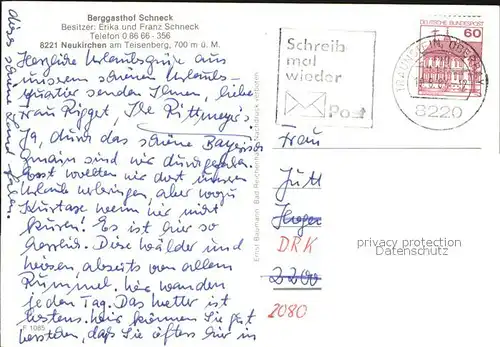 Berggasthof Schneck
Besitzer: Erika und Franz Schneck
Telefon 0 86 66 - 356
8221 Neukirchen am Teisenberg, 700 m ü. M.
Herzliche Urlaubsgrüße aus
unserem schönen Urlaubs-
quartier senden Ihnen, liebe
Frau Rigget, Ihre Rittmeyer's.
Ja, durch das schöne Bayerisch
Gmain sind wir
wollten wir dort unseren
Urlaub verbringen, aber wozu
Kurtaxe wenn wir nicht
kuren. Es ist hier so
herrlich. Diese Wälder und
Wiesen, abseits von allem
Rummel. Wir wandern
jeden Tag. Das Wetter ist
bestens. Wir können Sie gut
verstehen, daß Sie öfters hier in
dieses schöne Land fahren.
F 1085
Ernst Baumann, Bad Reichenhall, Nachdruck verboten
Schreib
mal
wieder
Post
DEUTSCHE BUNDESPOST
60
TRAUNSTEIN, OBERBAY
8220
Frau
Jutt
DRK
2200
2080
privacy protection
Datenschutz